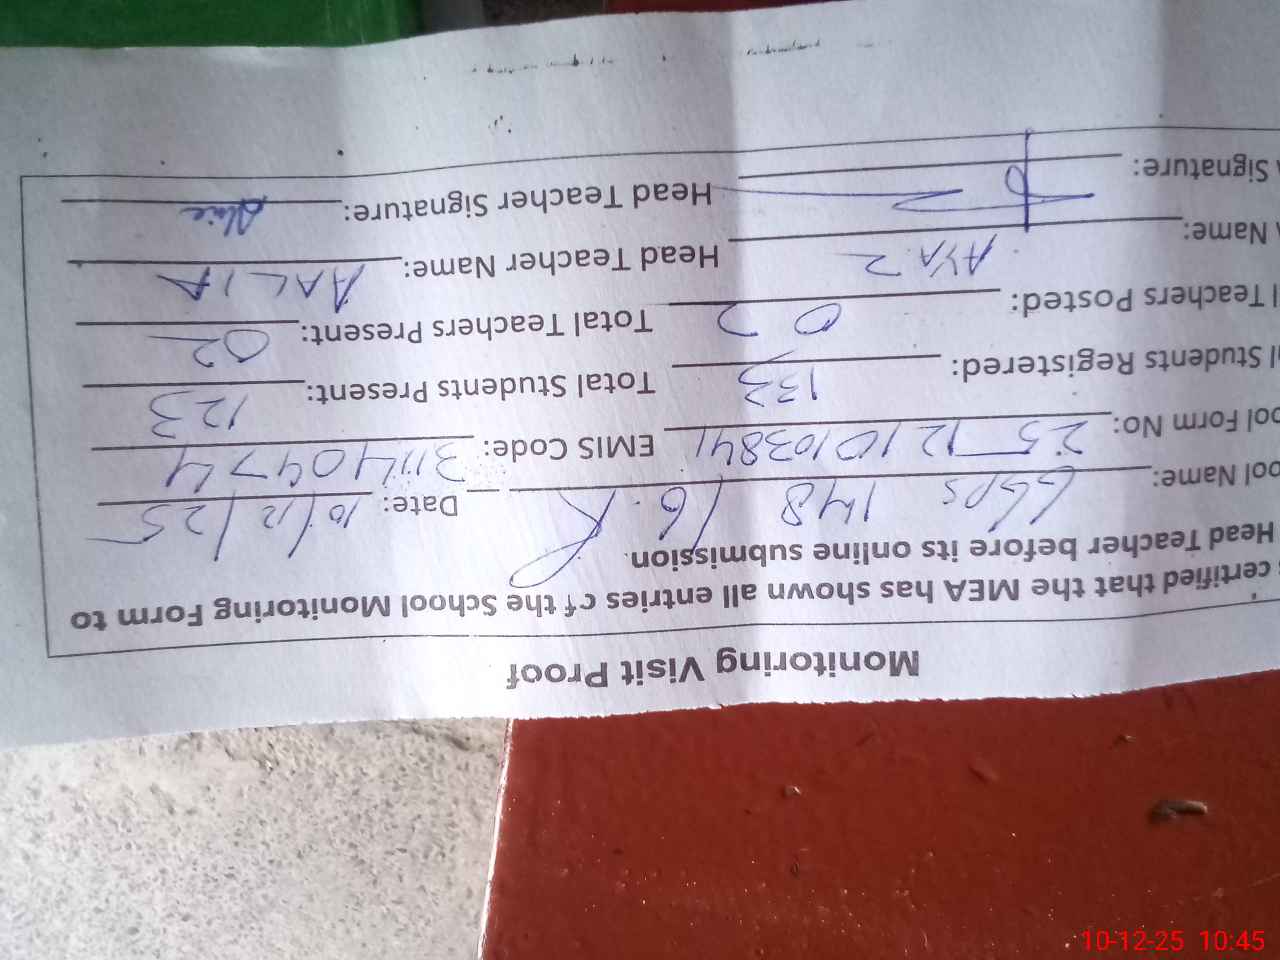 Monitoring Visit Proof
certified that the MEA has shown all entries of the School Monitoring Form to
Head Teacher before its online submission.
ool Name: GGPS 148 /6.R Date: 10/12/25
ool Form No: 251210103841 EMIS Code: 311140474
l Students Registered: 133 Total Students Present: 123
l Teachers Posted: 02 Total Teachers Present: 02
Name: AYAZ Head Teacher Name: AALIA
Signature: Head Teacher Signature:
10-12-25 10:45